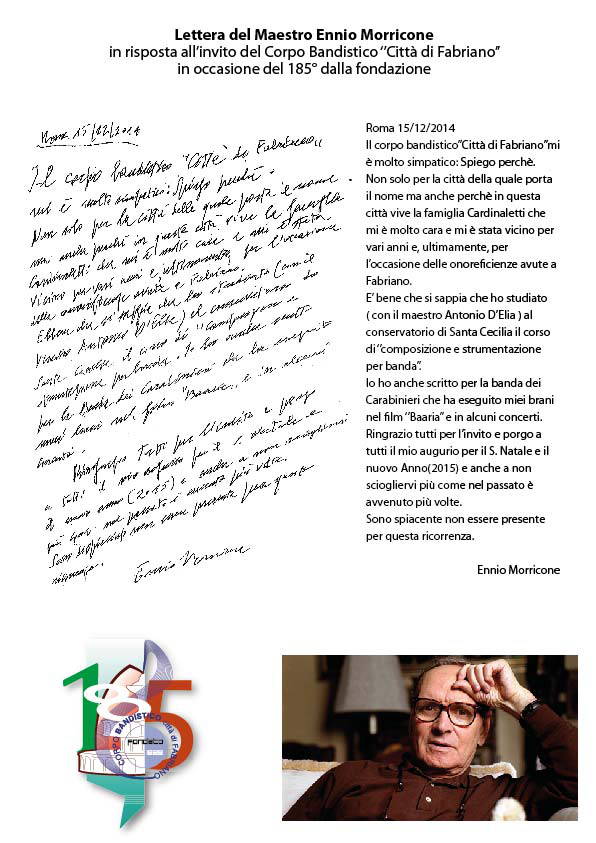 Lettera del Maestro Ennio Morricone
in risposta all'invito del Corpo Bandistico "Città di Fabriano"
in occasione del 185° dalla fondazione
Roma 15/12/2014
Il corpo bandistico "Città di Fabriano"
mi è molto simpatico: Spiego perchè.
Non solo per la città della quale porta il nome
ma anche perchè in questa città vive la famiglia
Cardinaletti che mi è molto cara e mi è stata
vicino per vari anni e, ultimamente, per l'occasione
delle onoreficienze avute a Fabriano.
E' bene che si sappia che ho studiato (con il
maestro Antonio D'Elia) al conservatorio di
Santa Cecilia il corso di "composizione e
strumentazione per banda". Io ho anche scritto
per la banda dei Carabinieri che ha eseguito
miei brani nel film "Baaria" e in alcuni
concerti.
Ringrazio tutti per l'invito e porgo
a tutti il mio augurio per il S. Natale e
il nuovo anno (2015) e anche a non sciogliervi
più come nel passato è avvenuto più volte.
Sono spiacente non essere presente per questa
ricorrenza.
Ennio Morricone
Roma 15/12/2014
Il corpo bandistico"Città di Fabriano"mi
è molto simpatico: Spiego perchè.
Non solo per la città della quale porta
il nome ma anche perchè in questa
città vive la famiglia Cardinaletti che
mi è molto cara e mi è stata vicino per
vari anni e, ultimamente, per
l'occasione delle onoreficienze avute a
Fabriano.
E' bene che si sappia che ho studiato
( con il maestro Antonio D'Elia ) al
conservatorio di Santa Cecilia il corso
di "composizione e strumentazione
per banda".
Io ho anche scritto per la banda dei
Carabinieri che ha eseguito miei brani
nel film "Baaria" e in alcuni concerti.
Ringrazio tutti per l'invito e porgo a
tutti il mio augurio per il S. Natale e il
nuovo Anno(2015) e anche a non
sciogliervi più come nel passato è
avvenuto più volte.
Sono spiacente non essere presente
per questa ricorrenza.
Ennio Morricone
185
CORPO BANDISTICO Città di FABRIANO